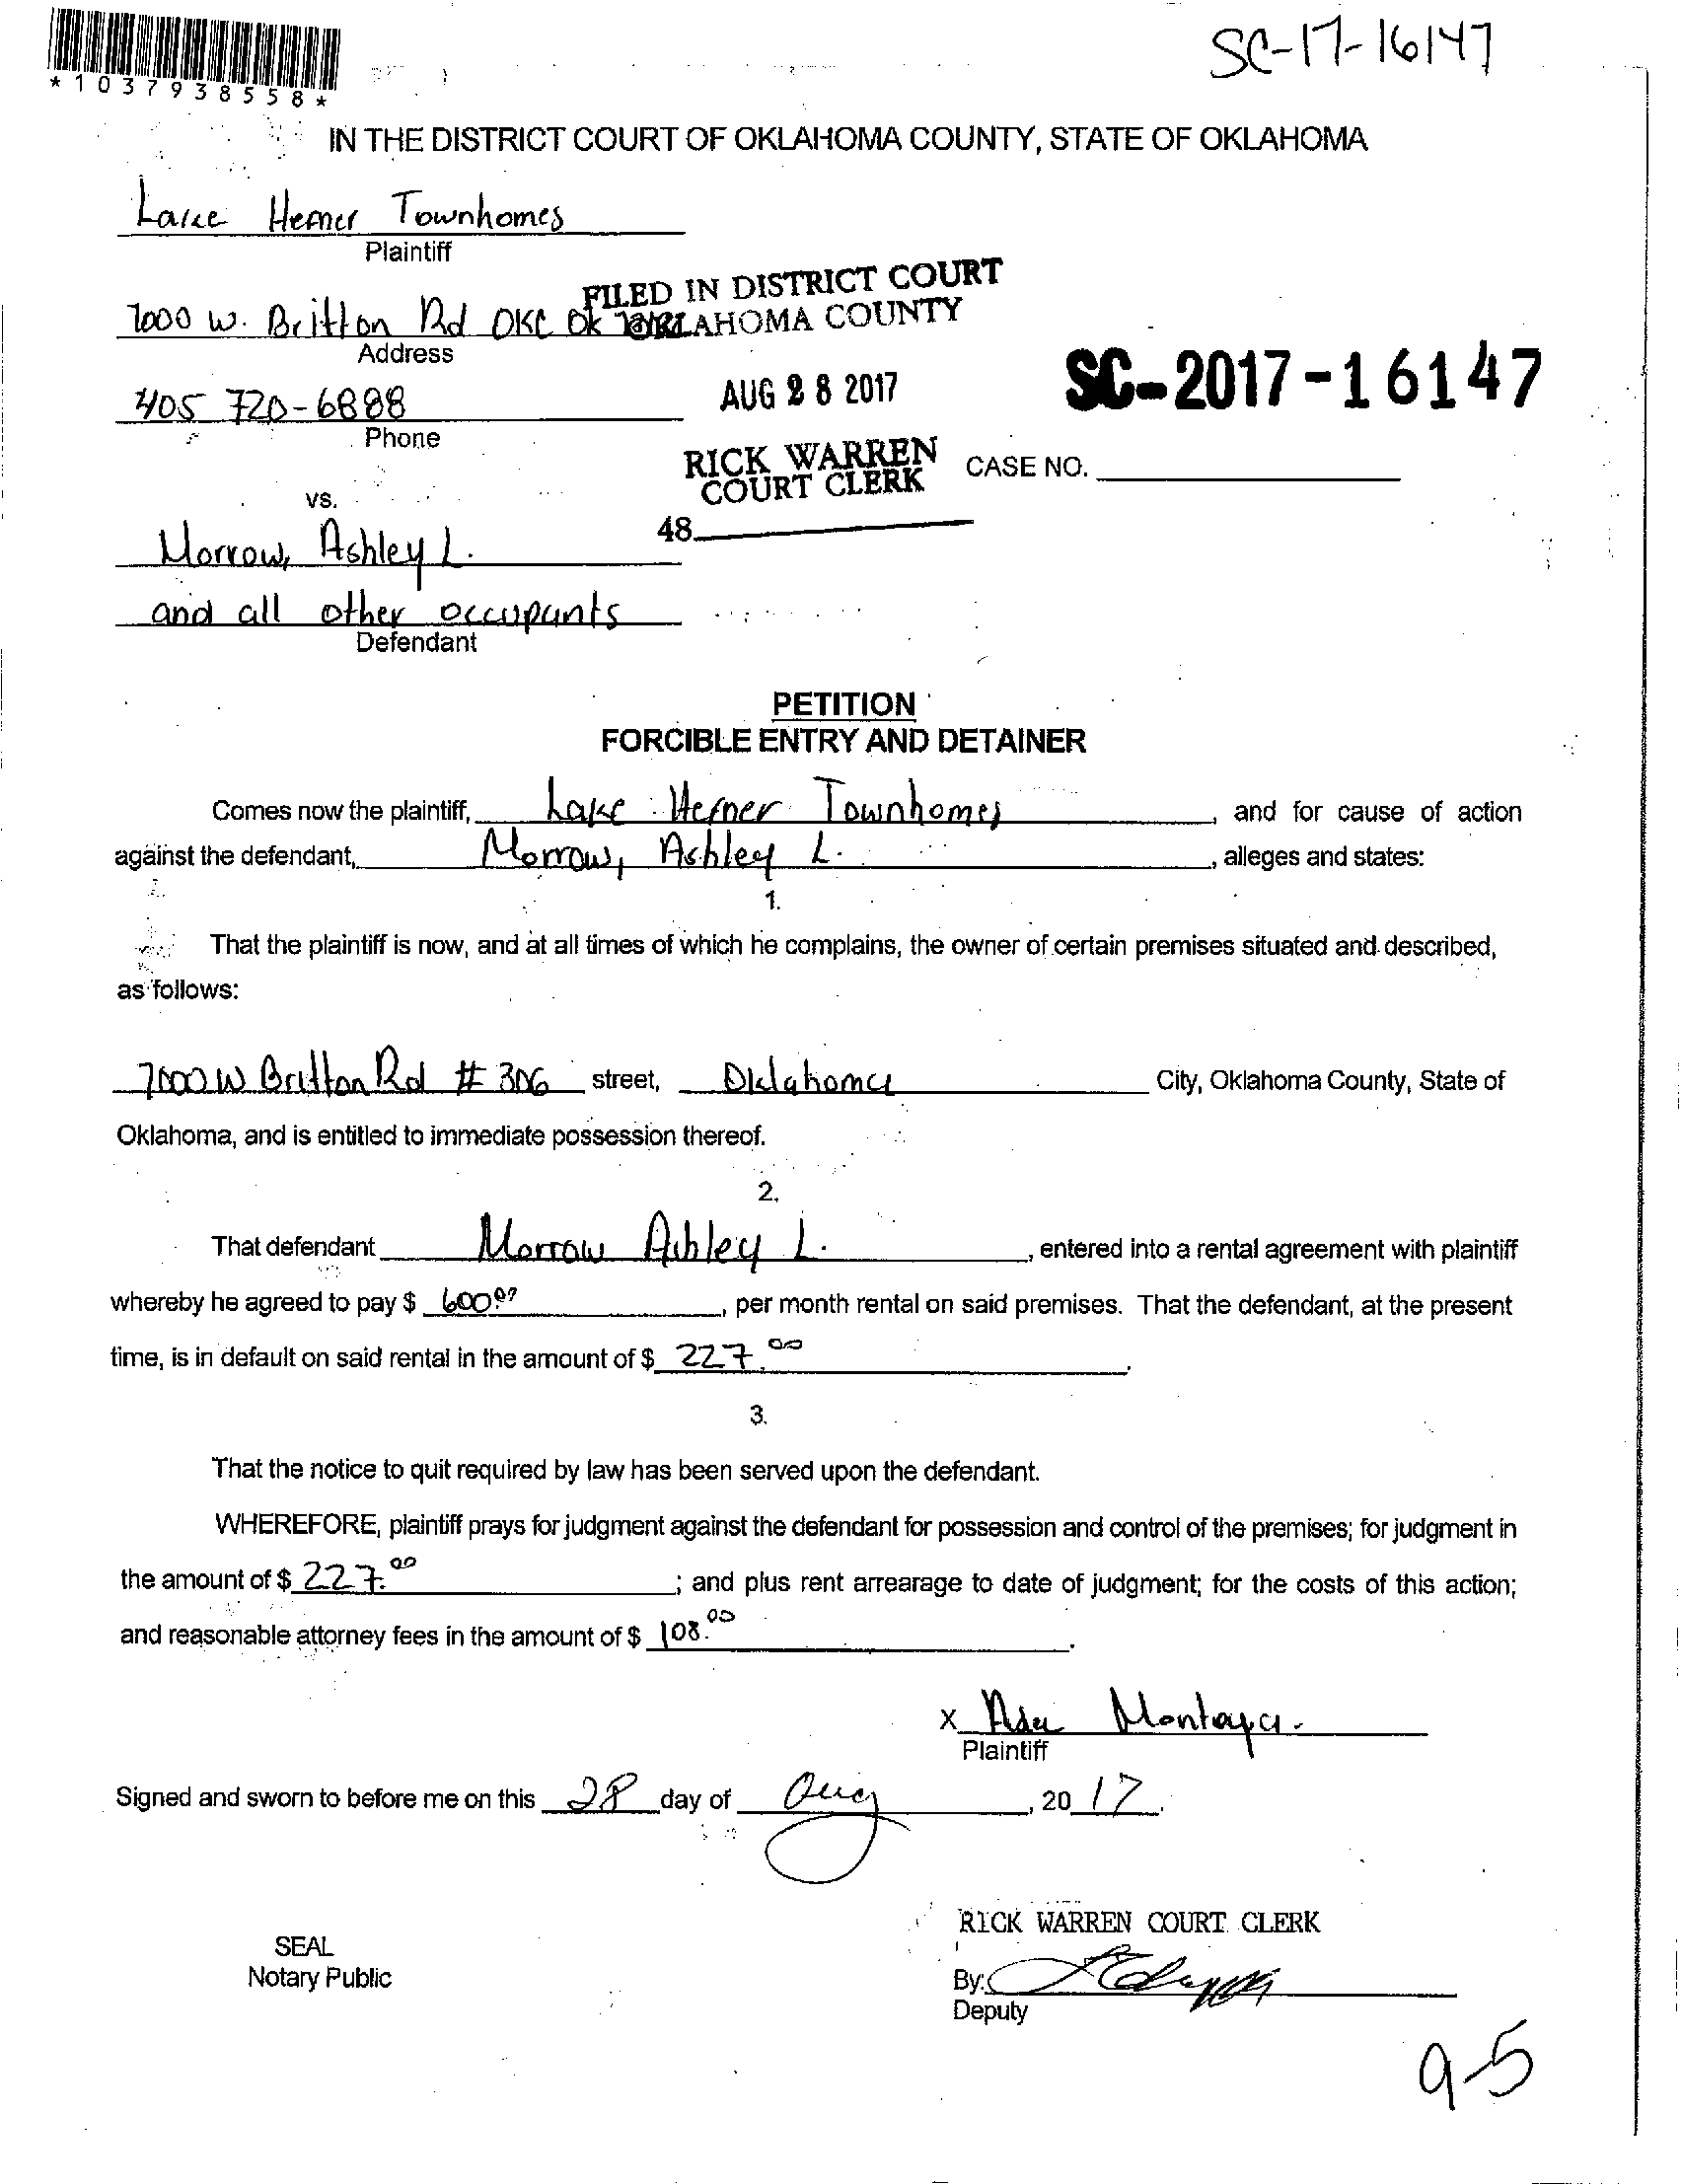 SC-17-16147
*1037938558*
IN THE DISTRICT COURT OF OKLAHOMA COUNTY, STATE OF OKLAHOMA
Lake Hefner Townhomes
Plaintiff
FILED IN DISTRICT COURT
OKLAHOMA COUNTY
7000 W. Britton Rd OKC OK
Address
AUG 28 2017
SC-2017-16147
405 720-6888
Phone
RICK WARREN
COURT CLERK
CASE NO.
vs.
48
Morrow, Ashley L.
and all other occupants
Defendant
PETITION
FORCIBLE ENTRY AND DETAINER
Comes now the plaintiff, Lake Hefner Townhomes, and for cause of action
against the defendant, Morrow, Ashley L., alleges and states:
1.
That the plaintiff is now, and at all times of which he complains, the owner of certain premises situated and described,
as follows:
7000 W Britton Rd # 306 street, Oklahoma City, Oklahoma County, State of
Oklahoma, and is entitled to immediate possession thereof.
2.
That defendant Morrow Ashley L., entered into a rental agreement with plaintiff
whereby he agreed to pay $ 600.00, per month rental on said premises. That the defendant, at the present
time, is in default on said rental in the amount of $ 227.00.
3.
That the notice to quit required by law has been served upon the defendant.
WHEREFORE, plaintiff prays for judgment against the defendant for possession and control of the premises; for judgment in
the amount of $ 227.00; and plus rent arrearage to date of judgment; for the costs of this action;
and reasonable attorney fees in the amount of $ 108.00.
X Ada Montoya.
Plaintiff
Signed and sworn to before me on this 28 day of Aug, 20 17.
RICK WARREN COURT CLERK
SEAL
Notary Public
By:
Deputy
9-5